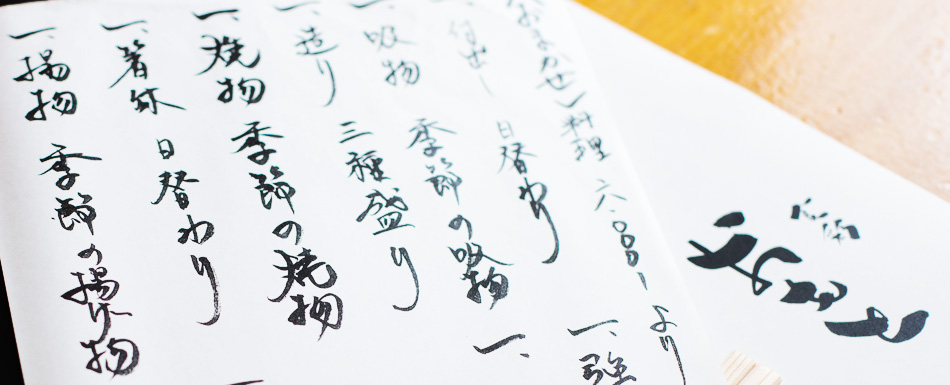 おまかせ）料理 六.〇〇〇ーより
日替わり
一、吸物 季節の吸物
一、造り 三種盛り
一、焼物 季節の焼物
一、箸休 日替わり
一、揚物 季節の揚げ物
一、強
一、